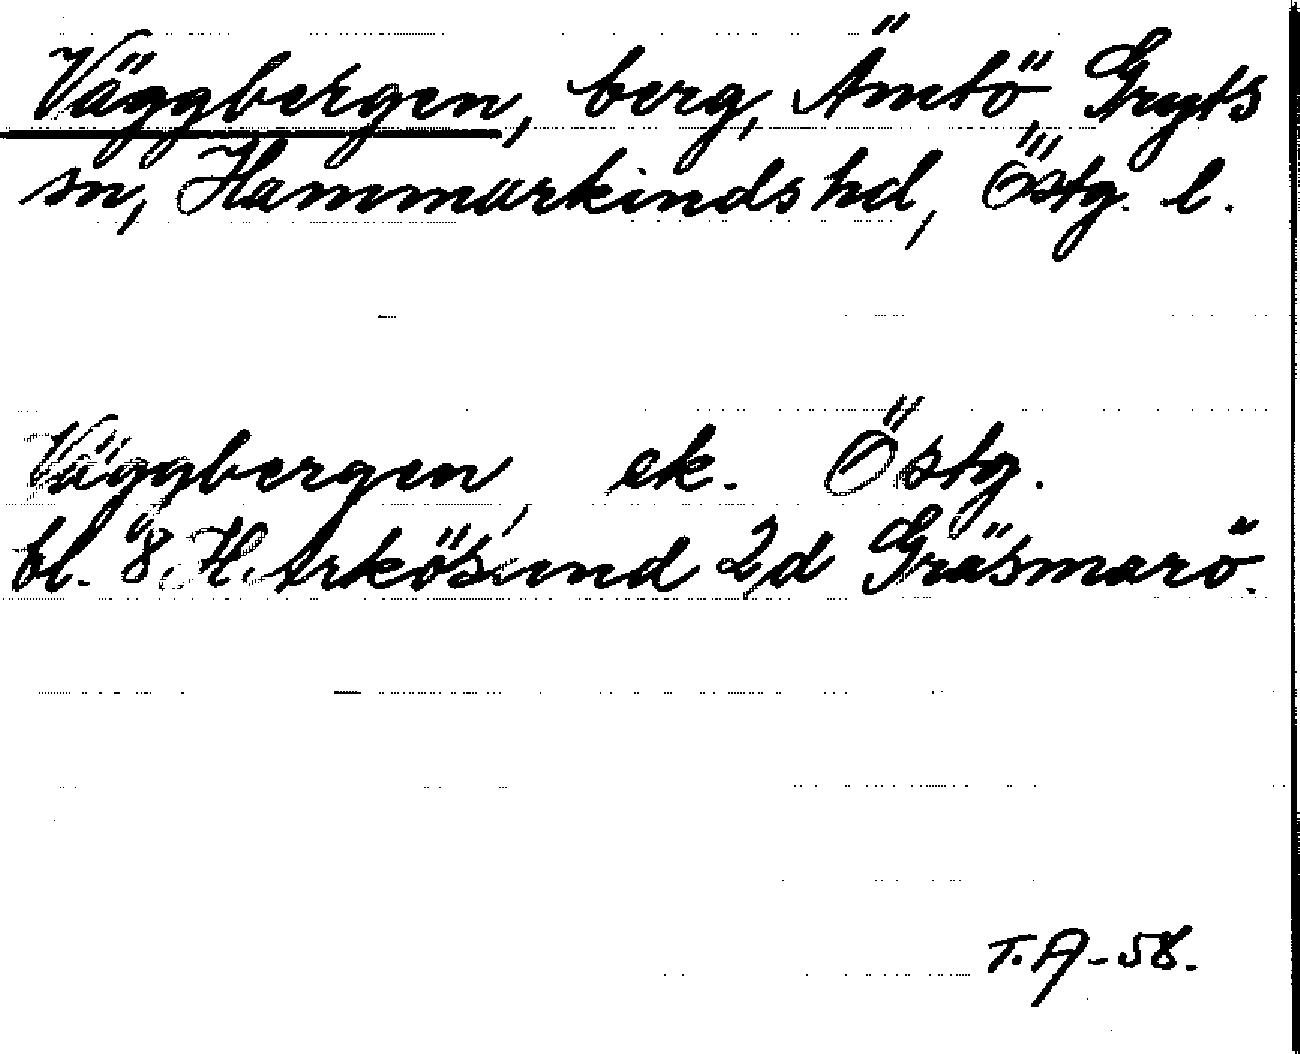 Väggbergen, berg, Ämtö, Gryts
sn, Hammarkinds hd, Östg. l.
Väggbergen, ek. Östg.
bl. 8 H. Arkösund 2d Gräsmarö.
T.A-58.